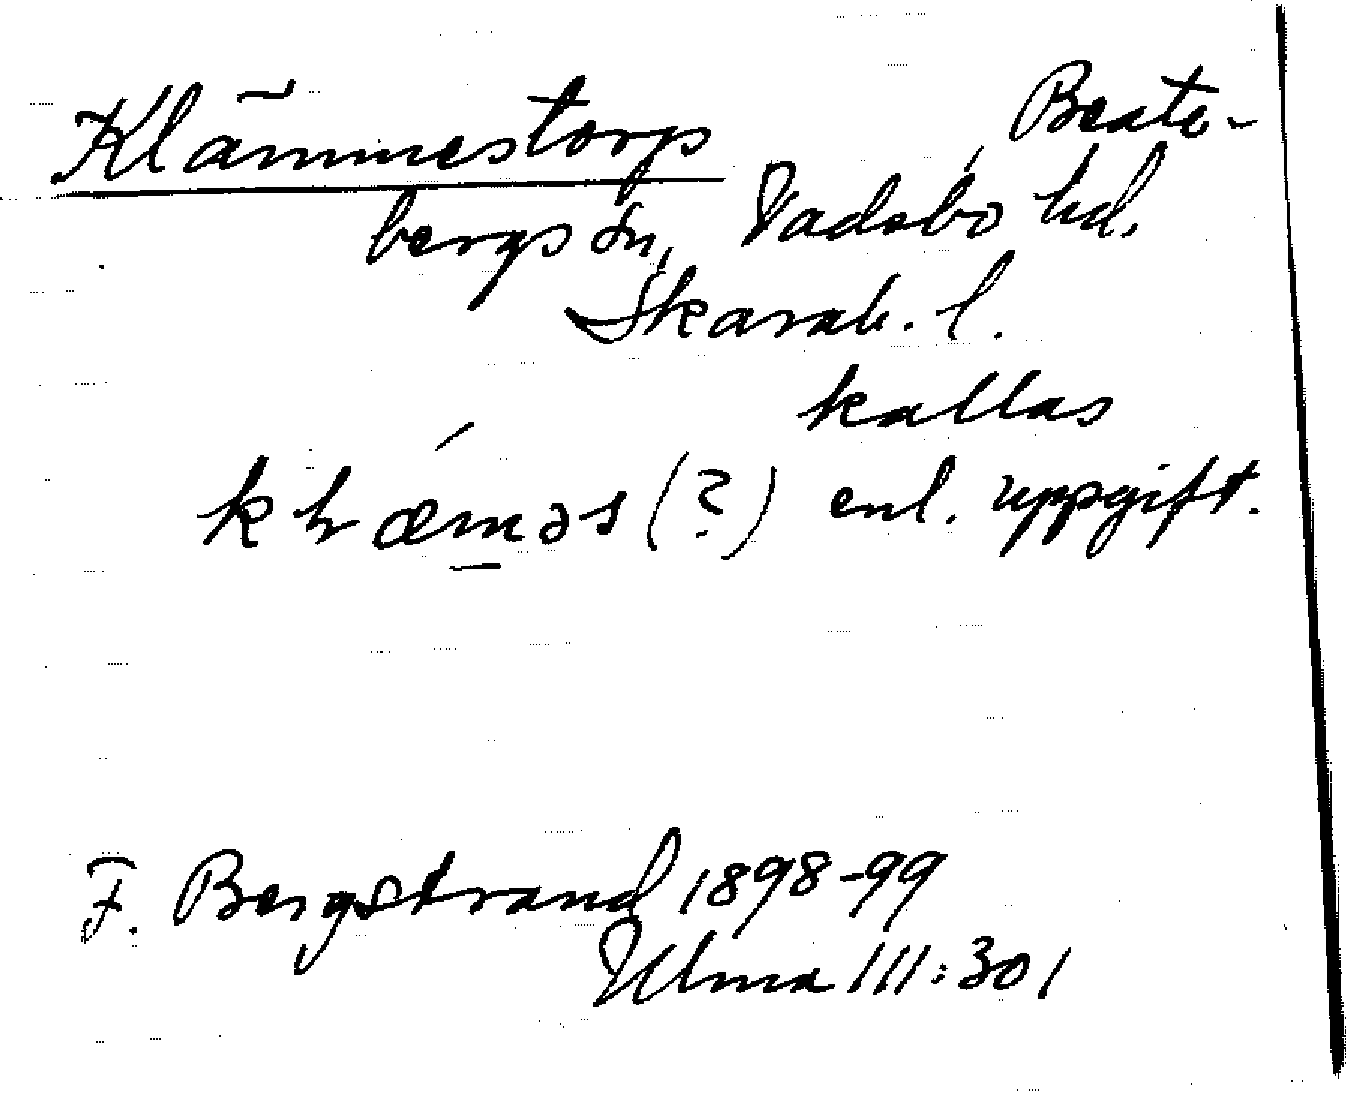 Klämmestorp, Beate-
bergs sn, Vadsbo hd.
Skarab. l.
kallas
(?) enl. uppgift.
F. Bergstrand 1898-99
Ulma 111:301